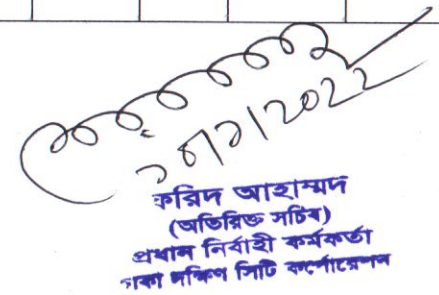 ফরিদ আহাম্মদ
(অতিরিক্ত সচিব)
প্রধান নির্বাহী কর্মকর্তা
ঢাকা দক্ষিণ সিটি কর্পোরেশন